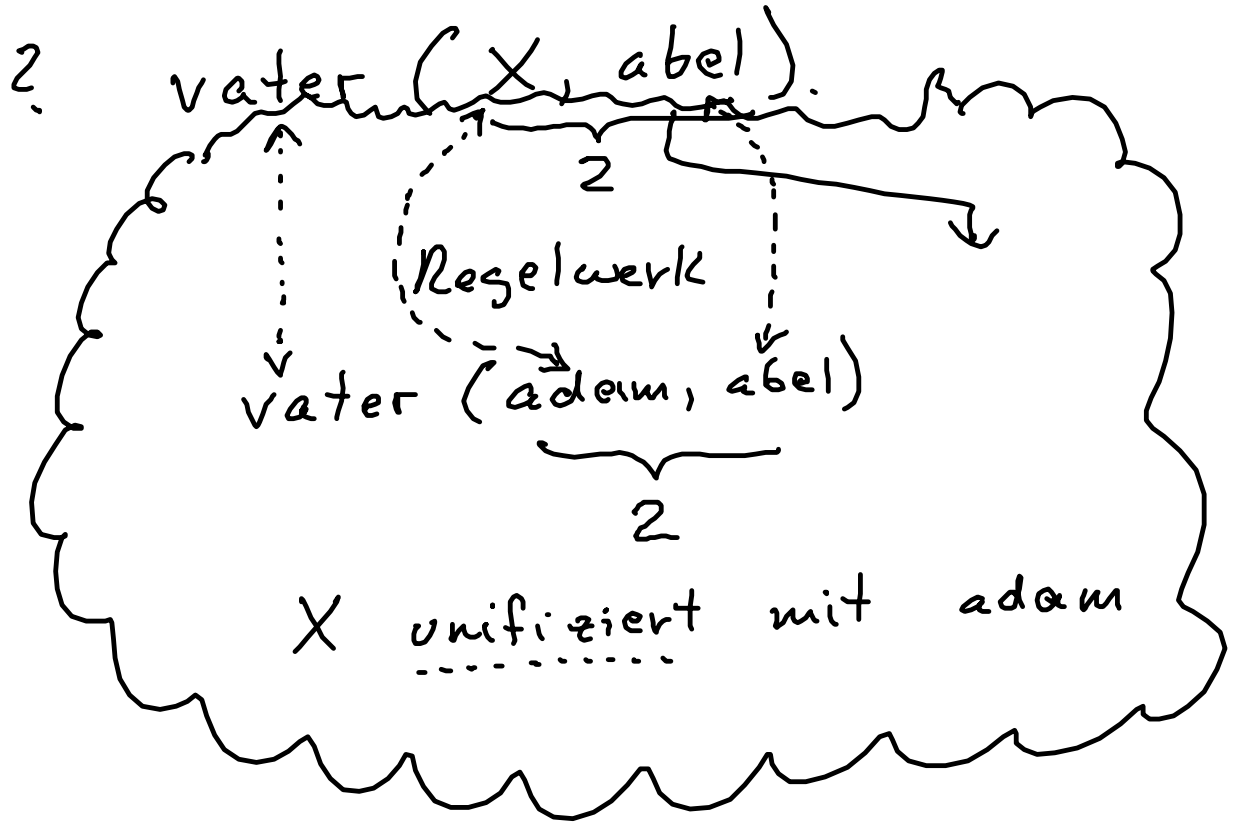 ? vater (X, abel).
2
Regelwerk
vater (adam, abel)
2
X unifiziert mit adam